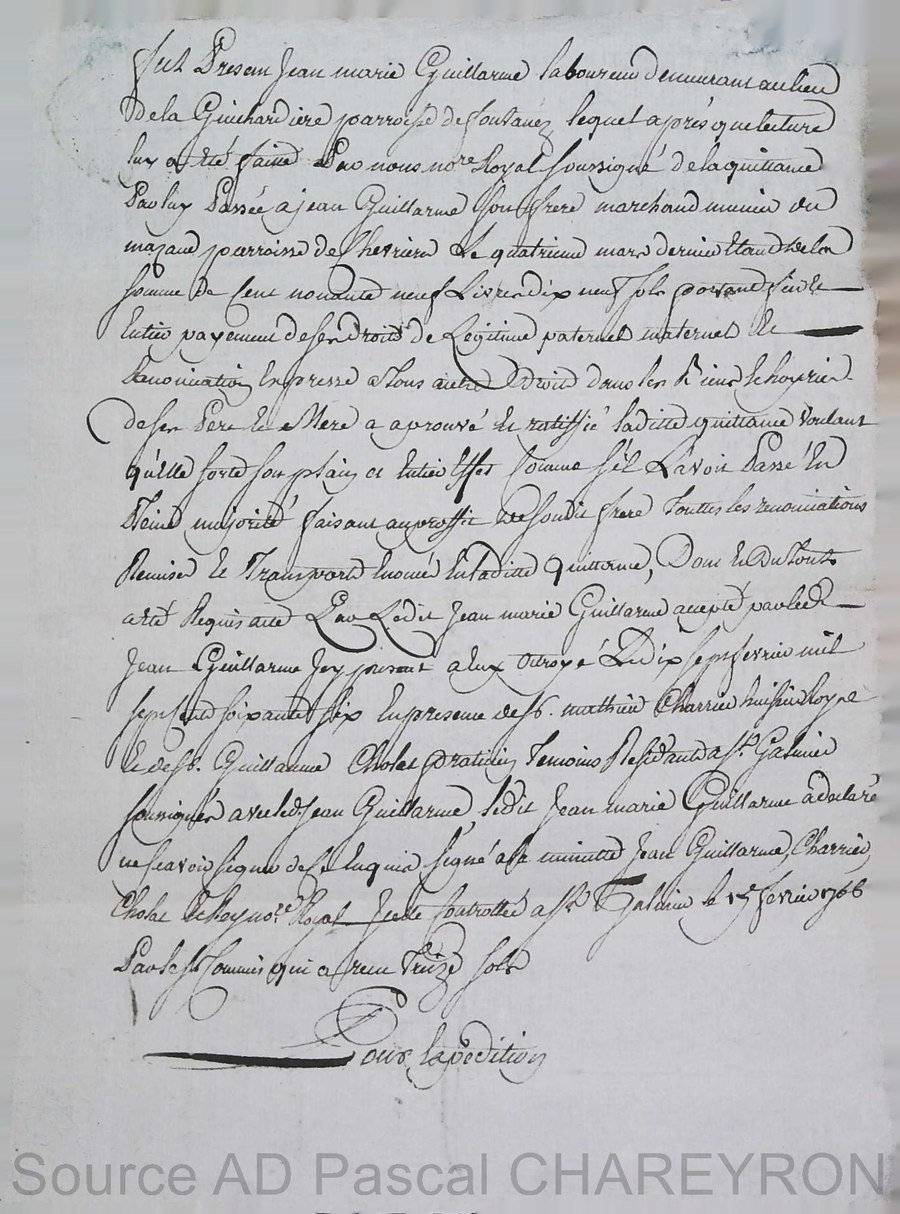 fut Present Jean marie Guillarme laboureur demeurant au lieu
de la Guichardiere parroisse de fontanéz lequel après que lecture
luy a été faitte Par nous nore Royal soussigné de la quittance
Par luy Passée a jean Guillarme son frere marchand munier du
mazand parroisse de Chevriere le quatrieme mars dernier Etant de la
somme de Cent nonante neuf Livres dix neuf sols portant
Entier payement de ses droits de Legitime paternel maternel et
Renonciation Expresse a tous autre Droits dans les Biens et hoyries
de ses Pere et Mere a aprouvé et ratiffié laditte quittance voulant
qu'elle sorte son plain et Entier Effet comme s'il L'avoit Passé En
Pleine majorité faisant au proffit de sondit frere touttes les renonciations
Remises et Transports Enoncé En laditte Quittance, Dont et Du tout
acte Requis acte Par Ledit Jean marie Guillarme accepté par led
Jean Guillarme Icy present a lux otroyé Le dix sept fevrier mil
sept Cent soixante six En presence de sr. mathieu Charrier huissier Royal
et de sr. Guillarme Cholat praticien Temoins Residants a st. Galmier
soussignés avec led. Jean Guillarme, ledit Jean marie Guillarme a declaré
ne scavoir signer de ce Enquis signé a la minutte Jean Guillarme, Charrier,
Cholat nore Royal Icelle Controllée a st. Galmier le 17e fevrier 1766
Par le sr Commis qui a recu Treize sols
Pour Expedition
Source AD Pascal CHAREYRON